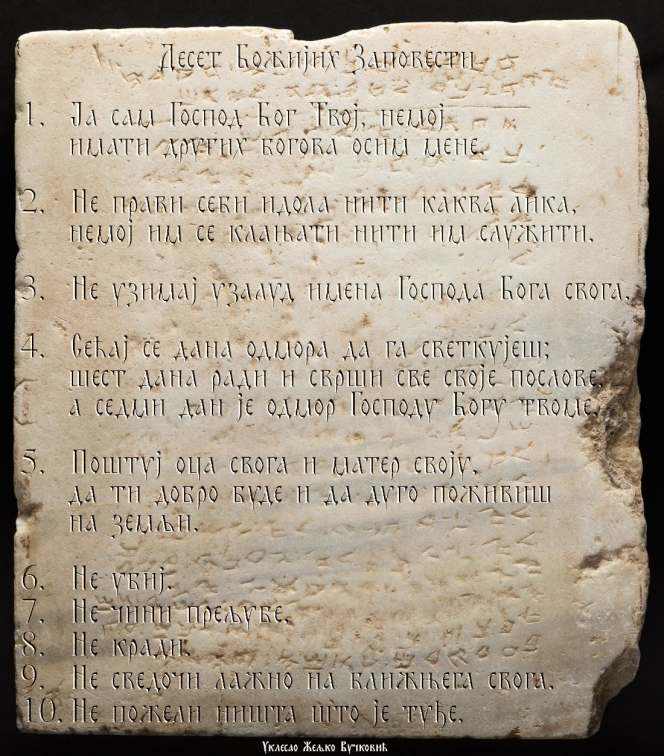 Десет Божијих Заповести
1. Ја сам Господ Бог Твој, немој
имати других богова осим мене.
2. Не прави себи идола нити каква лика,
немој им се клањати нити им служити.
3. Не узимај узалуд имена Господа Бога свога.
4. Сећај се дана одмора да га светкујеш;
шест дана ради и сврши све своје послове,
а седми дан је одмор Господу Богу твоме.
5. Поштуј оца свога и матер своју,
да ти добро буде и да дуго поживиш
на земљи.
6. Не убиј.
7. Не чини прељубе.
8. Не кради.
9. Не сведочи лажно на ближњега свога.
10. Не пожели ништа што је туђе.
Уклесао Жељко Вучковић